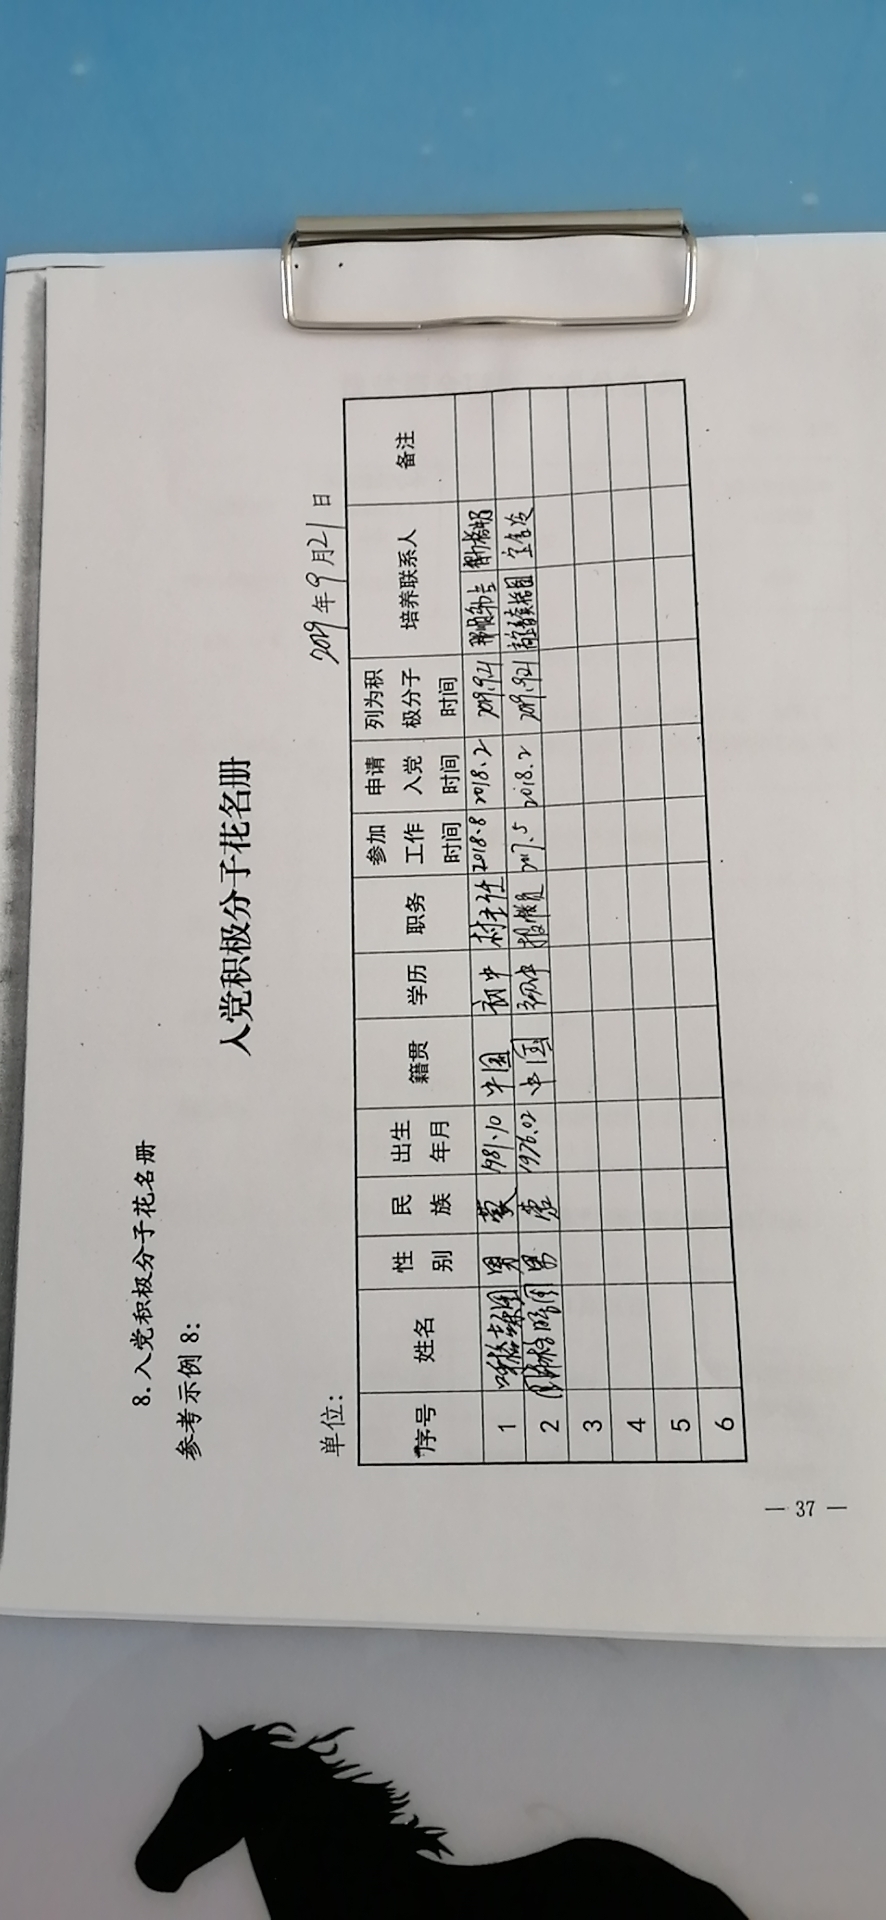 8.入党积极分子花名册
参考示例 8：
入党积极分子花名册
单位： 2019年9月21日
序号 姓名 性别 民族 出生年月 籍贯 学历 职务 参加工作时间 申请入党时间 列为积极分子时间 培养联系人 备注
1 男 蒙 1981.10 中国 初中 村主任 2018.8 2018.2 2019.9.21
2 男 蒙 1976.02 中国 初中 2017.5 2018.2 2019.9.21
3
4
5
6
— 37 —